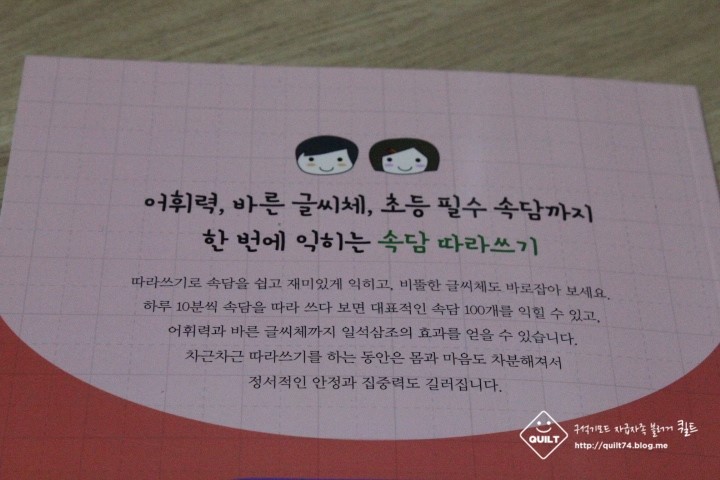 어휘력, 바른 글씨체, 초등 필수 속담까지
한 번에 익히는 속담 따라쓰기
따라쓰기로 속담을 쉽고 재미있게 익히고, 비뚤한 글씨체도 바로잡아 보세요.
하루 10분씩 속담을 따라 쓰다 보면 대표적인 속담 100개를 익힐 수 있고,
어휘력과 바른 글씨체까지 일석삼조의 효과를 얻을 수 있습니다.
차근차근 따라쓰기를 하는 동안은 몸과 마음도 차분해져서
정서적인 안정과 집중력도 길러집니다.
QUILT
구석기모드 자급자족 블로거 퀼트
http://quilt74.blog.me